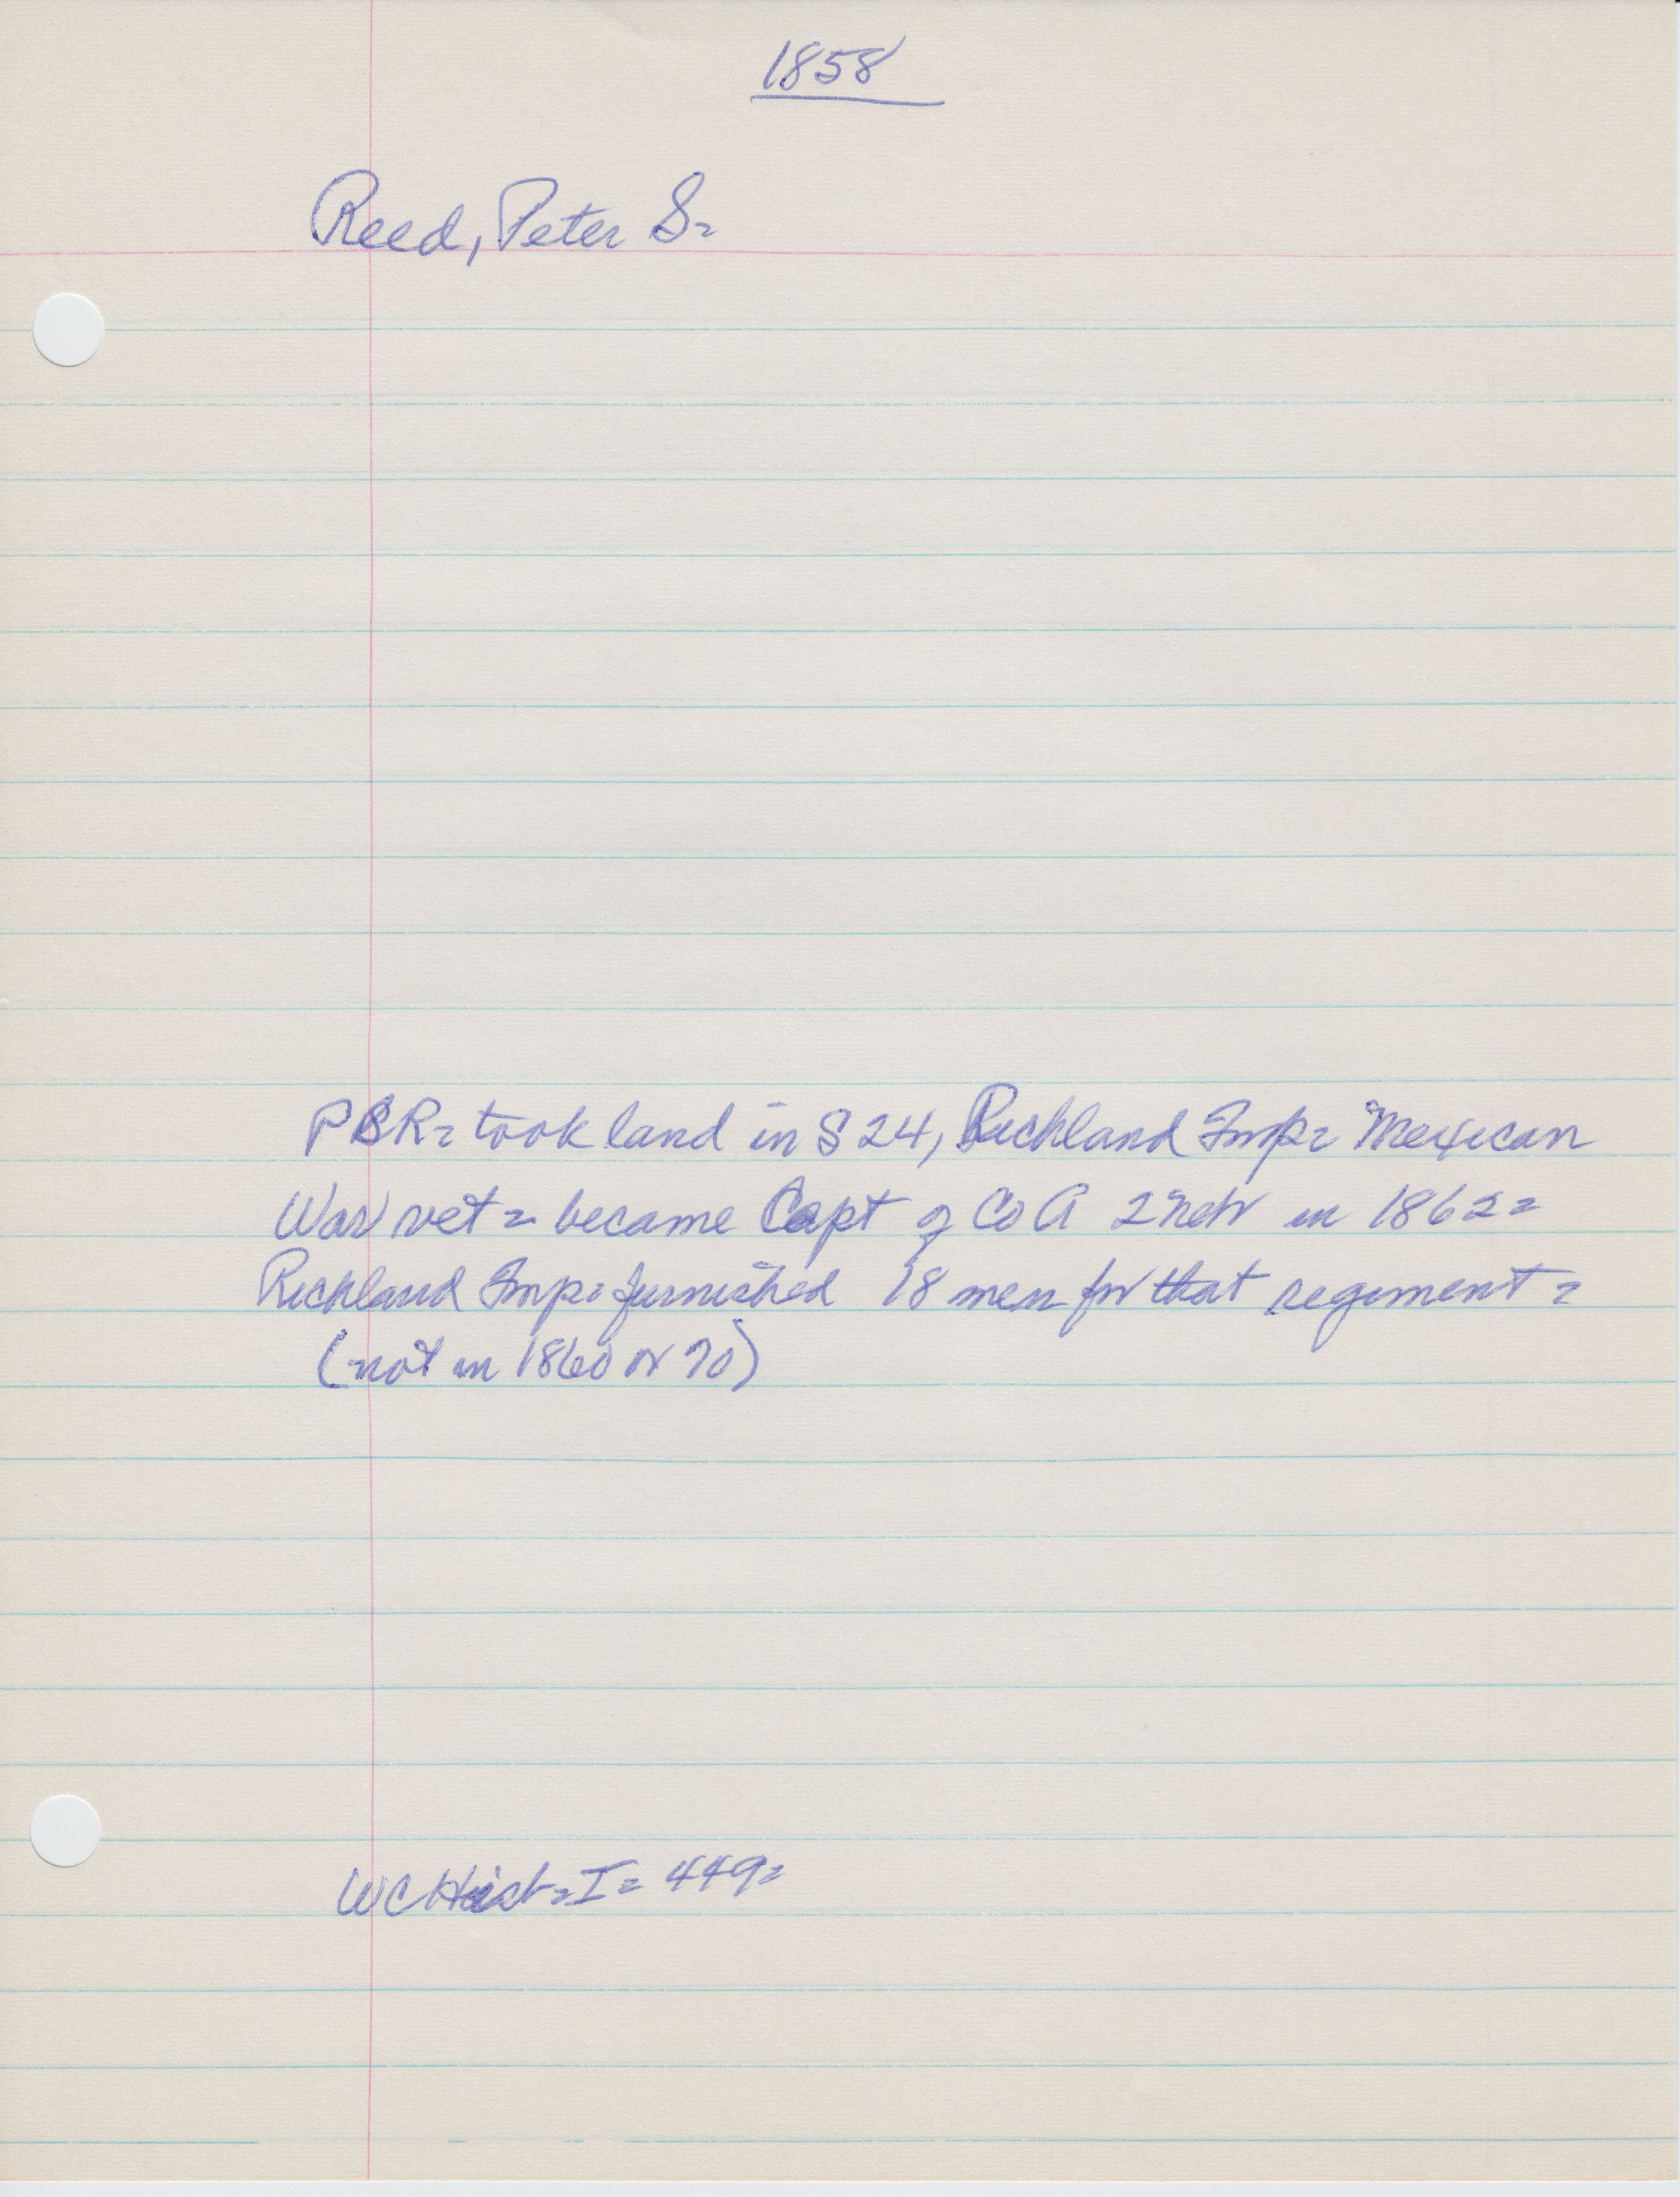 1858
Reed, Peter S=
PSR= took land in S 24, Richland Twp= Mexican
War vet = became Capt of Co A 2 Neb in 1862=
Richland Twp= furnished 18 men for that regiment =
(not in 1860 or 70)
WC Hist = I = 449=